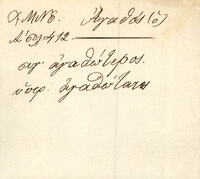 Χ.Μ.Ν.Β. Ἀγαθός (ὁ)
Α΄ σελ 412.
συγ. ἀγαθώτερος.
ὑπερ. ἀγαθώτατος